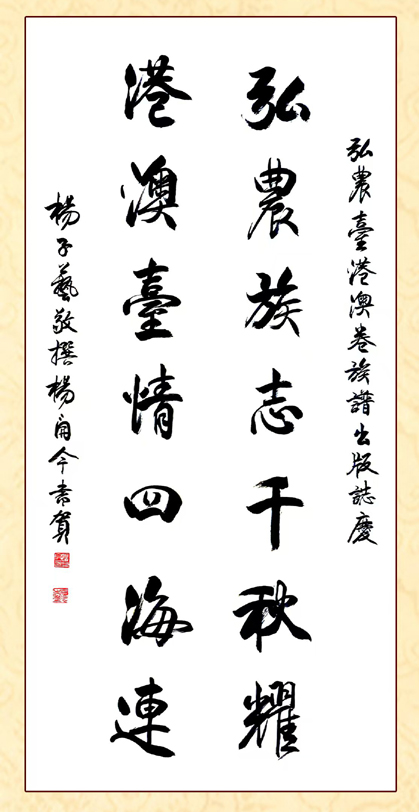 弘農臺港澳卷族譜出版誌慶
弘農族志千秋耀
港澳臺情四海連
楊子藝敬撰楊角今書賀